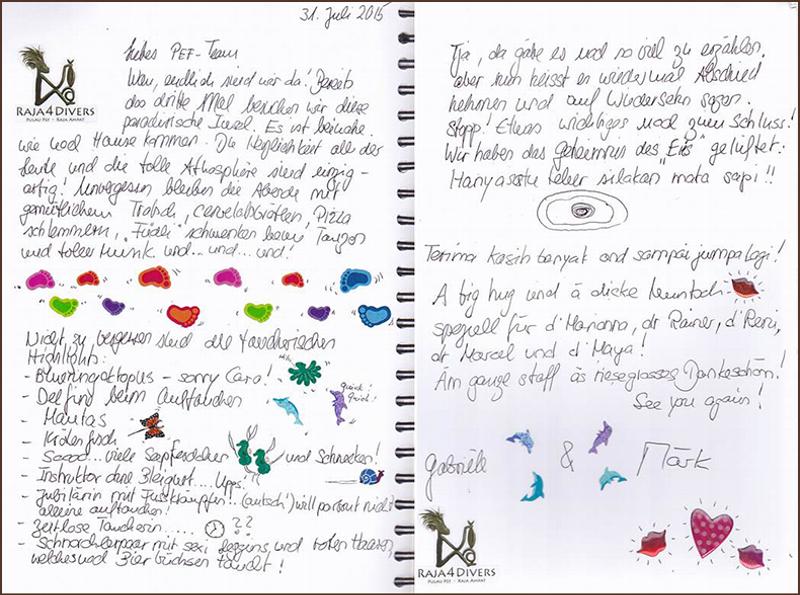 31. Juli 2015
RAJA4DIVERS
PULAU PEF - RAJA AMPAT
Liebes PEF-Team
Wow, endlich sind wir da! Bereits
das dritte Mal besuchen wir diese
paradiesische Insel. Es ist beinahe
wie nach Hause kommen. Die Herzlichkeit all der
Leute und die tolle Athosphäre sind einzig-
artig! Unvergessen bleiben die Abende mit
gemütlichem Tratsch, Cervelatbrötlen, Pizza
schlemmen, "Füdli" schwenken beim Tanzen
und toller Musik und... und... und!
Nicht zu vergessen sind die taucherischen
Highlights:
- Blueringoktopus - sorry Caro!
- Delfin beim Auftauchen
quick!
quick!
- Mantas
- Krokofisch
- Soooo... viele Seepferdchen und Schnecken!
- Instruktor ohne Bleigurt.... Upps!
- Jubilarin mit Fusskrämpfen.. (autsch!) will partout nicht
alleine auftauchen!
- Zeitlose Taucherin...... ??
- Schnorchlerpaar mit sexi Leggins und roten Haaren,
welches nach Bierbüchsen taucht!
Tja, da gäbe es noch so viel zu erzählen,
aber nun heisst es wiedermal Abschied
nehmen und auf Wiedersehn sagen.
Stopp! Etwas wichtiges noch zum Schluss!
Wir haben das Geheimnis des "Eis" gelüftet:
Hanya satu telur silakan mata sapi!!
Terima kasih banyak and sampai jumpa lagi!
A big hug und ä dicke Muntsch
speziell für d'Marianna, dr Rainer, d'Reni,
dr Marcel und d'Maya!
Äm ganze staff äs riesegrosses Dankeschöm!
See you again!
Gabriele & Märk
RAJA4DIVERS
PULAU PEF - RAJA AMPAT